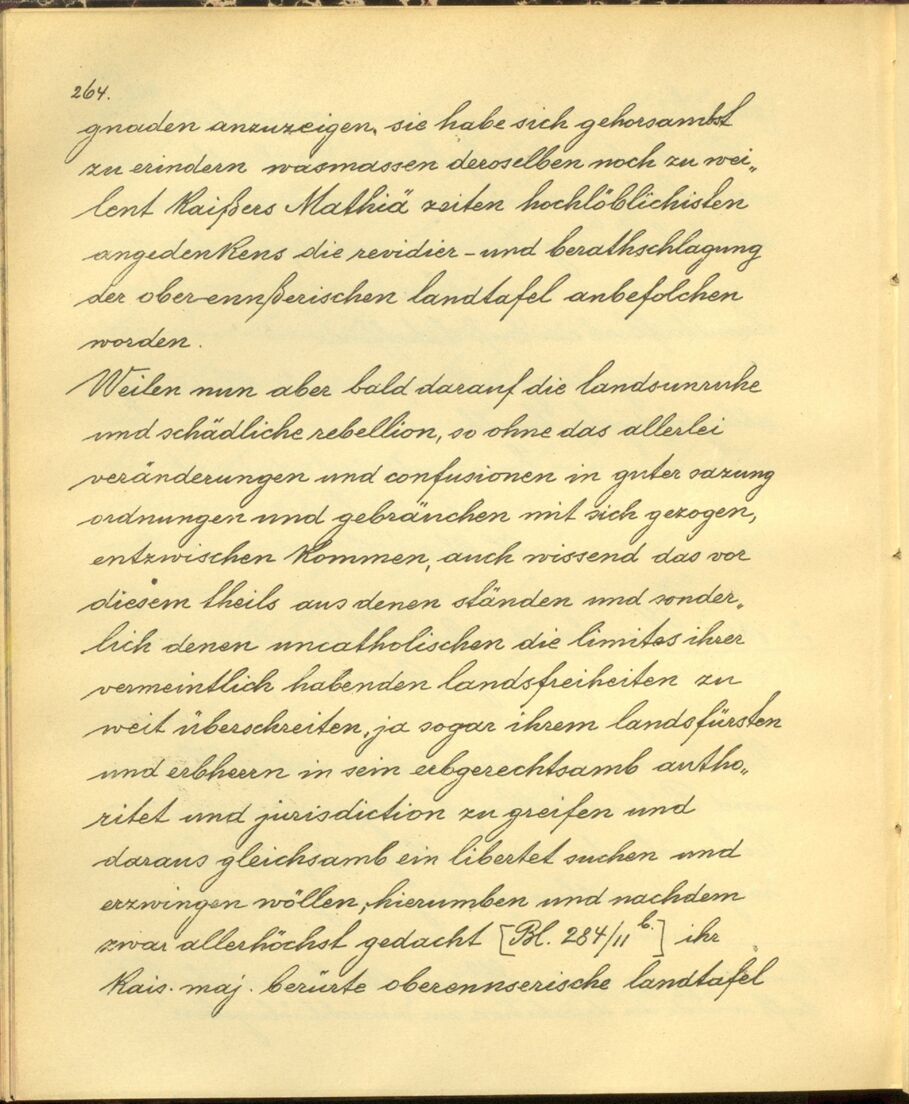 264.
gnaden anzuzeigen, sie habe sich gehorsambst
zu erindern wasmassen deroselben noch zu wei„
lent Kaißers Mathiä zeiten hochlöblichisten
angedenkens die revidier - und berathschlagung
der ober-ennßerischen landtafel anbefolchen
worden.
Weilen nun aber bald darauf die landsunruhe
und schädliche rebellion, so ohne das allerlei
veränderungen und confusionen in guter sazung
ordnungen und gebräuchen mit sich gezogen,
entzwischen kommen, auch wissend das vor
diesem theils aus denen ständen und sonder„
lich denen uncatholischen die limites ihrer
vermeintlich habenden landsfreiheiten zu
weit überschreiten, ja sogar ihrem landsfürsten
und erbherrn in sein erbgerechtsamb autho„
ritet und jurisdiction zu greifen und
daraus gleichsamb ein libertet suchen und
erzwingen wöllen; hierumben und nachdem
zwar allerhöchst gedacht [Bl. 284/11 b.] ihr
Kais. maj. berürte oberennserische landtafel